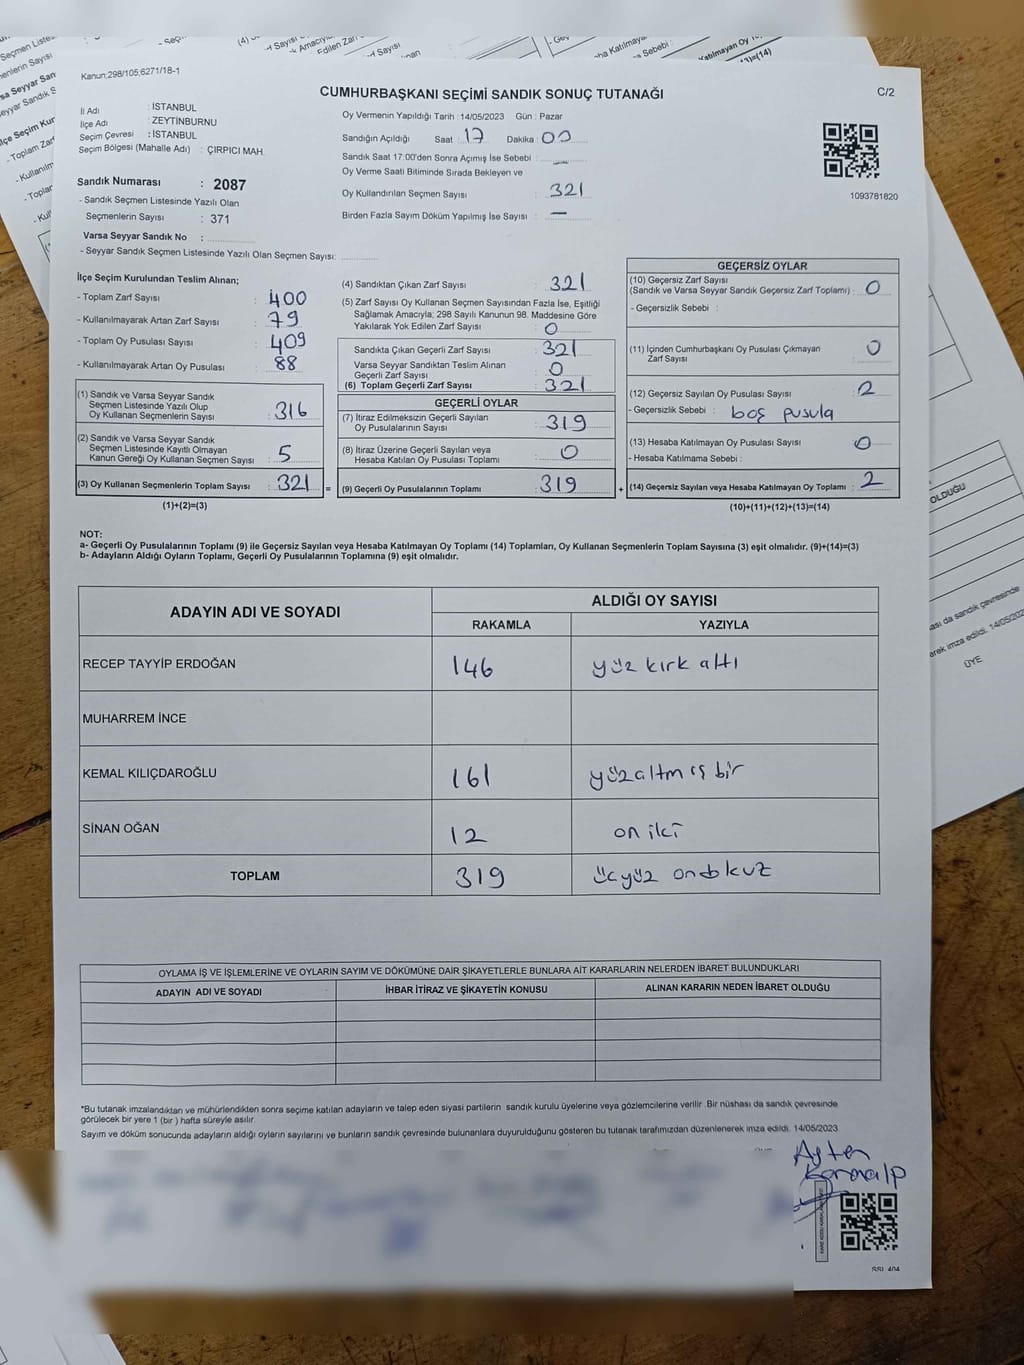 Kanun;298/105;6271/18-1
CUMHURBAŞKANI SEÇİMİ SANDIK SONUÇ TUTANAĞI
C/2
İl Adı : İSTANBUL
İlçe Adı : ZEYTİNBURNU
Seçim Çevresi : İSTANBUL
Seçim Bölgesi (Mahalle Adı) : ÇIRPICI MAH.
Oy Vermenin Yapıldığı Tarih : 14/05/2023 Gün : Pazar
Sandığın Açıldığı Saat : 17 Dakika : 00
Sandık Saat 17:00'den Sonra Açımış İse Sebebi : —
Oy Verme Saati Bitiminde Sırada Bekleyen ve
Oy Kullandırılan Seçmen Sayısı : 321
Birden Fazla Sayım Döküm Yapılmış İse Sayısı : —
1093781820
Sandık Numarası : 2087
- Sandık Seçmen Listesinde Yazılı Olan
Seçmenlerin Sayısı : 371
Varsa Seyyar Sandık No :
- Seyyar Sandık Seçmen Listesinde Yazılı Olan Seçmen Sayısı:
İlçe Seçim Kurulundan Teslim Alınan;
- Toplam Zarf Sayısı : 400
- Kullanılmayarak Artan Zarf Sayısı : 79
- Toplam Oy Pusulası Sayısı : 409
- Kullanılmayarak Artan Oy Pusulası : 88
(1) Sandık ve Varsa Seyyar Sandık
Seçmen Listesinde Yazılı Olup
Oy Kullanan Seçmenlerin Sayısı : 316
(2) Sandık ve Varsa Seyyar Sandık
Seçmen Listesinde Kayıtlı Olmayan
Kanun Gereği Oy Kullanan Seçmen Sayısı : 5
(3) Oy Kullanan Seçmenlerin Toplam Sayısı : 321 =
(1)+(2)=(3)
(4) Sandıktan Çıkan Zarf Sayısı : 321
(5) Zarf Sayısı Oy Kullanan Seçmen Sayısından Fazla İse, Eşitliği
Sağlamak Amacıyla; 298 Sayılı Kanunun 98. Maddesine Göre
Yakılarak Yok Edilen Zarf Sayısı : 0
Sandıkta Çıkan Geçerli Zarf Sayısı : 321
Varsa Seyyar Sandıktan Teslim Alınan
Geçerli Zarf Sayısı : 0
(6) Toplam Geçerli Zarf Sayısı : 321
GEÇERLİ OYLAR
(7) İtiraz Edilmeksizin Geçerli Sayılan
Oy Pusulalarının Sayısı : 319
(8) İtiraz Üzerine Geçerli Sayılan veya
Hesaba Katılan Oy Pusulası Toplamı : 0
(9) Geçerli Oy Pusulalarının Toplamı : 319 +
GEÇERSİZ OYLAR
(10) Geçersiz Zarf Sayısı
(Sandık ve Varsa Seyyar Sandık Geçersiz Zarf Toplamı) : 0
- Geçersizlik Sebebi :
(11) İçinden Cumhurbaşkanı Oy Pusulası Çıkmayan
Zarf Sayısı : 0
(12) Geçersiz Sayılan Oy Pusulası Sayısı : 2
- Geçersizlik Sebebi : boş pusula
(13) Hesaba Katılmayan Oy Pusulası Sayısı : 0
- Hesaba Katılmama Sebebi :
(14) Geçersiz Sayılan veya Hesaba Katılmayan Oy Toplamı : 2
(10)+(11)+(12)+(13)=(14)
NOT:
a- Geçerli Oy Pusulalarının Toplamı (9) ile Geçersiz Sayılan veya Hesaba Katılmayan Oy Toplamı (14) Toplamları, Oy Kullanan Seçmenlerin Toplam Sayısına (3) eşit olmalıdır. (9)+(14)=(3)
b- Adayların Aldığı Oyların Toplamı, Geçerli Oy Pusulalarının Toplamına (9) eşit olmalıdır.
ADAYIN ADI VE SOYADI ALDIĞI OY SAYISI
RAKAMLA YAZIYLA
RECEP TAYYİP ERDOĞAN 146 yüz kırk altı
MUHARREM İNCE
KEMAL KILIÇDAROĞLU 161 yüzaltmış bir
SİNAN OĞAN 12 on iki
TOPLAM 319 üçyüz ondokuz
OYLAMA İŞ VE İŞLEMLERİNE VE OYLARIN SAYIM VE DÖKÜMÜNE DAİR ŞİKAYETLERLE BUNLARA AİT KARARLARIN NELERDEN İBARET BULUNDUKLARI
ADAYIN ADI VE SOYADI İHBAR İTİRAZ VE ŞİKAYETİN KONUSU ALINAN KARARIN NEDEN İBARET OLDUĞU
*Bu tutanak imzalandıktan ve mühürlendikten sonra seçime katılan adayların ve talep eden siyasi partilerin sandık kurulu üyelerine veya gözlemcilerine verilir. Bir nüshası da sandık çevresinde
görülecek bir yere 1 (bir) hafta süreyle asılır.
Sayım ve döküm sonucunda adayların aldığı oyların sayılarını ve bunların sandık çevresinde bulunanlara duyurulduğunu gösteren bu tutanak tarafımızdan düzenlenerek imza edildi. 14/05/2023
Ayten